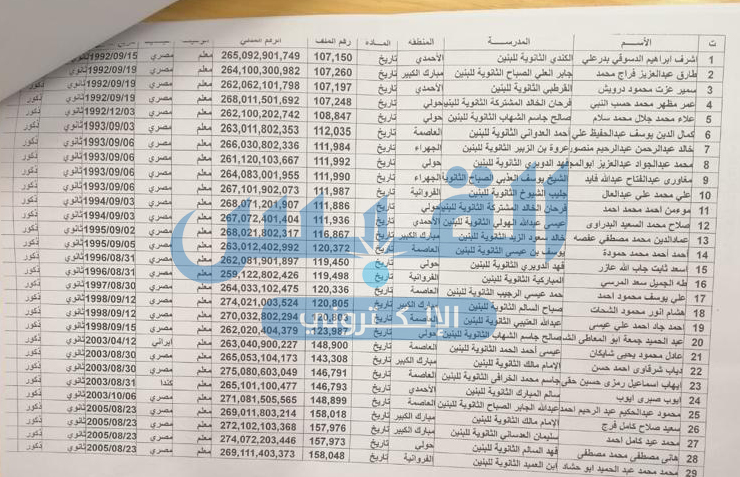 ت الأســـم المدرســـة المنطقه المـــادة رقم الملف الرقم المدني
1 اشرف ابراهيم الدسوقي بدرعلي الكندي الثانوية للبنين الأحمدي تاريخ 107,150 265,092,901,749 معلم مصري 1992/09/15
2 طارق عبدالعزيز فراج محمد جابر العلي الصباح الثانوية للبنين مبارك الكبير تاريخ 107,260 264,100,300,982 معلم مصري 1992/09/19 ثانوي ذكور
3 سمير عزت محمود درويش القرطبي الثانوية للبنين الأحمدي تاريخ 107,197 262,062,101,798 معلم مصري 1992/09/19 ثانوي ذكور
4 عمر مظهر محمد حسب النبي فرحان الخالد المشتركة الثانوية للبنين حولي تاريخ 107,248 268,011,501,692 معلم مصري 1992/09/19 ثانوي ذكور
5 علاء محمد جلال محمد سلام صالح جاسم الشهاب الثانوية للبنين حولي تاريخ 108,847 262,100,200,742 معلم مصري 1992/12/03 ثانوي ذكور
6 كمال الدين يوسف عبدالحفيظ علي أحمد العدواني الثانوية للبنين العاصمة تاريخ 112,035 263,011,802,353 معلم مصري 1993/09/03 ثانوي ذكور
7 خالد عبدالرحمن عبدالرحيم منصور عروة بن الزبير الثانوية للبنين الجهراء تاريخ 111,984 266,030,802,336 معلم مصري 1993/09/06 ثانوي ذكور
8 محمد عبدالجواد عبدالعزيز ابوالمج فهد الدويري الثانوية للبنين حولي تاريخ 111,992 261,120,103,667 معلم مصري 1993/09/06 ثانوي ذكور
9 مغاوري عبدالفتاح عبدالله فايد الشيخ يوسف العذبي الصباح الثانوية الجهراء تاريخ 111,990 264,083,001,955 معلم مصري 1993/09/06 ثانوي ذكور
10 علي محمد علي عبدالعال جليب الشيوخ الثانوية للبنين الفروانية تاريخ 111,987 267,101,902,073 معلم مصري 1993/09/06 ثانوي ذكور
11 موءمن احمد محمد احمد فرحان الخالد المشتركة الثانوية للبنين حولي تاريخ 111,886 268,071,201,907 معلم مصري 1994/09/03 ثانوي ذكور
12 صلاح محمد السعيد البدراوى عيسى عبدالله الهولي الثانوية للبنين الأحمدي تاريخ 111,936 267,072,401,404 معلم مصري 1994/09/03 ثانوي ذكور
13 عمادالدين محمد مصطفي عفصه خالد سعود الزيد الثانوية للبنين مبارك الكبير تاريخ 116,867 268,021,802,317 معلم مصري 1995/09/02 ثانوي ذكور
14 أحمد أحمد محمد حمودة يوسف بن عيسى الثانوية للبنين العاصمة تاريخ 120,372 263,012,402,992 معلم مصري 1995/09/05 ثانوي ذكور
15 اسعد ثابت جاب الله عازر فهد الدويري الثانوية للبنين حولي تاريخ 119,450 262,081,901,897 معلم مصري 1996/08/31 ثانوي ذكور
16 طه الجميل سعد المرسي المباركية الثانوية للبنين الفروانية تاريخ 119,498 259,122,802,426 معلم مصري 1996/08/31 ثانوي ذكور
17 علي يوسف محمود احمد جاسم عيسى الرجيب الثانوية للبنين العاصمة تاريخ 120,336 264,033,102,475 معلم مصري 1997/08/31 ثانوي ذكور
18 هشام انور محمود الشحات صباح السالم الثانوية للبنين مبارك الكبير تاريخ 120,805 274,021,003,524 معلم مصري 1998/09/12 ثانوي ذكور
19 احمد جاد احمد علي عيسى عبدالله العتيبي الثانوية للبنين تاريخ 120,803 270,032,802,294 معلم مصري 1998/09/12 ثانوي ذكور
20 عبد الحميد جمعة ابو المعاطي الش صالح جاسم الشهاب الثانوية للبنين حولي تاريخ 123,987 262,020,404,379 معلم مصري 1998/09/15 ثانوي ذكور
21 عادل محمود يحيى شايكان عيسى أحمد الحمد الثانوية للبنين العاصمة تاريخ 148,900 263,040,900,227 معلم ايراني 2003/04/12 ثانوي ذكور
22 دياب شرقاوى احمد حسن الإمام مالك الثانوية للبنين مبارك الكبير تاريخ 143,308 265,053,104,173 معلم مصري 2003/08/31 ثانوي ذكور
23 ايهاب اسماعيل رمزى حسين حقي جاسم محمد الخرافي الثانوية للبنين العاصمة تاريخ 146,791 275,080,603,049 معلم مصري 2003/08/31 ثانوي ذكور
24 ايوب صبرى ايوب سالم المبارك الثانوية للبنين الأحمدي تاريخ 146,793 265,101,100,477 معلم كندا 2003/08/31 ثانوي ذكور
25 محمود عبدالحكيم عبد الرحيم احمد عبدالله الجابر الصباح الثانوية للبنين العاصمة تاريخ 148,899 271,081,505,565 معلم مصري 2003/10/06 ثانوي ذكور
26 سعيد صلاح كامل فرج الإمام مالك الثانوية للبنين مبارك الكبير تاريخ 158,018 269,011,803,214 معلم مصري 2005/08/23 ثانوي ذكور
27 احمد محمد عيد كامل سليمان العدساني الثانوية للبنين مبارك الكبير تاريخ 157,976 272,102,103,368 معلم مصري 2005/08/23 ثانوي ذكور
28 هانى مصطفى محمد مصطفى فهد السالم الثانوية للبنين حولي تاريخ 157,973 274,072,203,446 معلم مصري 2005/08/23 ثانوي ذكور
29 محمد محمد عبد الحميد ابو حشاد ابن العميد الثانوية للبنين الفروانية تاريخ 158,048 269,111,403,373 معلم مصري 2005/08/23 ثانوي ذكور
الإلكتروني